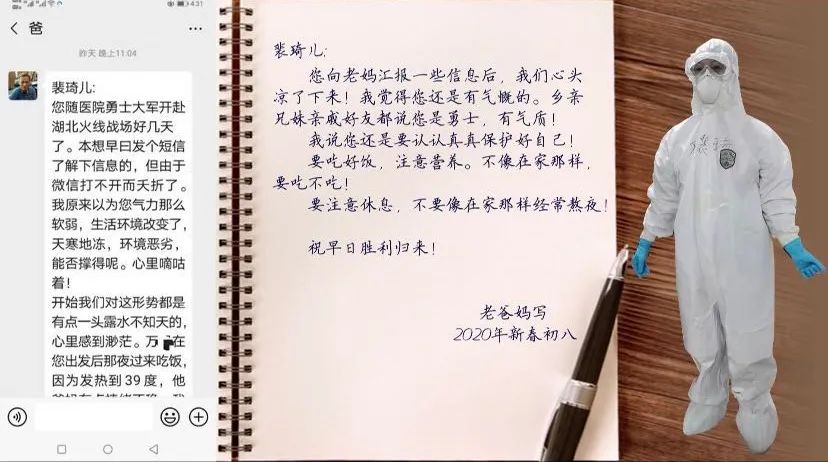 4:31
爸
昨天 晚上11:04
裴琦儿:
您随医院勇士大军开赴
湖北火线战场好几天
了。本想早曰发个短信
了解下信息的，但由于
微信打不开而夭折了。
我原来以为您气力那么
软弱，生活环境改变了，
天寒地冻，环境恶劣，
能否撑得呢。心里嘀咕
着！
开始我们对这形势都是
有点一头露水不知天的，
心里感到渺茫。万 在
您出发后那夜过来吃饭，
因为发热到39度，他
裴琦儿:
您向老妈汇报一些信息后，我们心头
凉了下来！我觉得您还是有气慨的。乡亲
兄妹亲戚好友都说您是勇士，有气质！
我说您还是要认认真真保护好自己！
要吃好饭，注意营养。不像在家那样，
要吃不吃！
要注意休息，不要像在家那样经常熬夜！
祝早日胜利归来！
老爸妈写
2020年新春初八